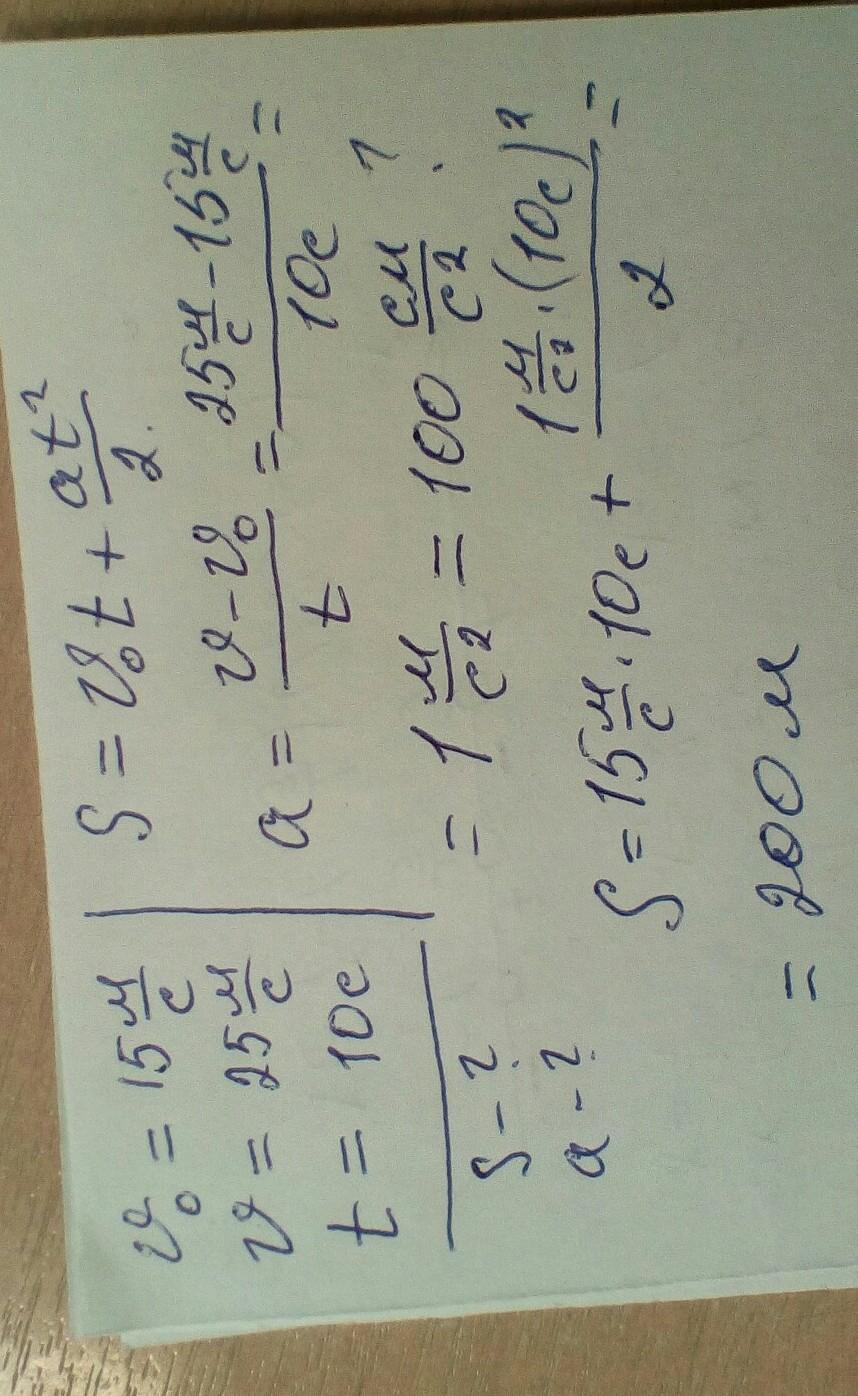 υ₀ = 15 м/с
υ = 25 м/с
t = 10 с
S - ?
a - ?
S = υ₀t + at²/2.
a = υ - υ₀/t = 25 м/с - 15 м/с/10 с =
= 1 м/с² = 100 см/с² ?
S = 15 м/с · 10 с + 1 м/с² · (10 с)²/2 =
= 200 м